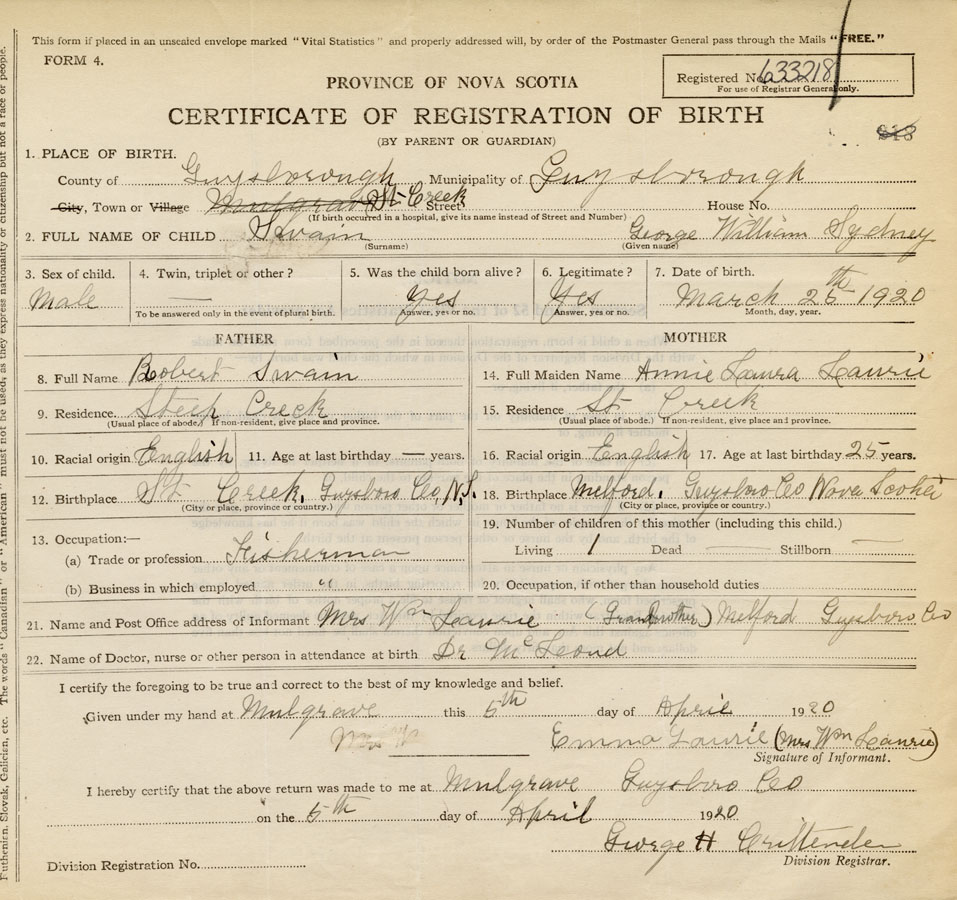 This form if placed in an unsealed envelope marked "Vital Statistics" and properly addressed will, by order of the Postmaster General pass through the Mails "FREE."
FORM 4.
Registered No. 633218
For use of Registrar General only.
PROVINCE OF NOVA SCOTIA
CERTIFICATE OF REGISTRATION OF BIRTH
(BY PARENT OR GUARDIAN)
1. PLACE OF BIRTH.
County of Guysborough Municipality of Guysborough
City, Town or Village Mulgrave St Creek Street House No.
(If birth occurred in a hospital, give its name instead of Street and Number)
2. FULL NAME OF CHILD Swain George William Sydney
(Surname) (Given name)
3. Sex of child. 4. Twin, triplet or other? 5. Was the child born alive? 6. Legitimate? 7. Date of birth.
Male — Yes Yes March 26th 1920
To be answered only in the event of plural birth. Answer, yes or no. Answer, yes or no. Month, day, year.
FATHER
8. Full Name Robert Swain
9. Residence Steep Creek
(Usual place of abode.) If non-resident, give place and province.
10. Racial origin English 11. Age at last birthday — years.
12. Birthplace St Creek, Guysboro Co, N.S.
(City or place, province or country.)
13. Occupation:—
(a) Trade or profession Fisherman
(b) Business in which employed "
MOTHER
14. Full Maiden Name Annie Laura Laurie
15. Residence St Creek
(Usual place of abode.) If non-resident, give place and province.
16. Racial origin English 17. Age at last birthday 25 years.
18. Birthplace Melford, Guysboro Co Nova Scotia
(City or place, province or country.)
19. Number of children of this mother (including this child.)
Living 1 Dead — Stillborn —
20. Occupation, if other than household duties
21. Name and Post Office address of Informant Mrs Wm Laurie (Grandmother) Melford Guysboro Co
22. Name of Doctor, nurse or other person in attendance at birth Dr McLeond
I certify the foregoing to be true and correct to the best of my knowledge and belief.
Given under my hand at Mulgrave this 5th day of April 1920
Emma Laurie (Mrs Wm Laurie)
Signature of Informant.
I hereby certify that the above return was made to me at Mulgrave Guysboro Co
on the 5th day of April 1920
George H Crittenden
Division Registrar.
Division Registration No.
Ruthenian, Slovak, Galician, etc. The words "Canadian" or "American" must not be used, as they express nationality or citizenship but not a race or people.